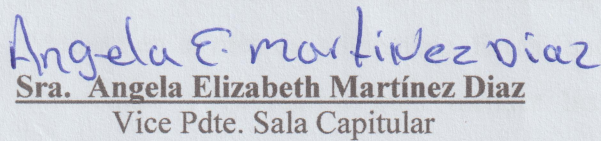 Angela E. Martinez Diaz
Sra. Angela Elizabeth Martínez Diaz
Vice Pdte. Sala Capitular